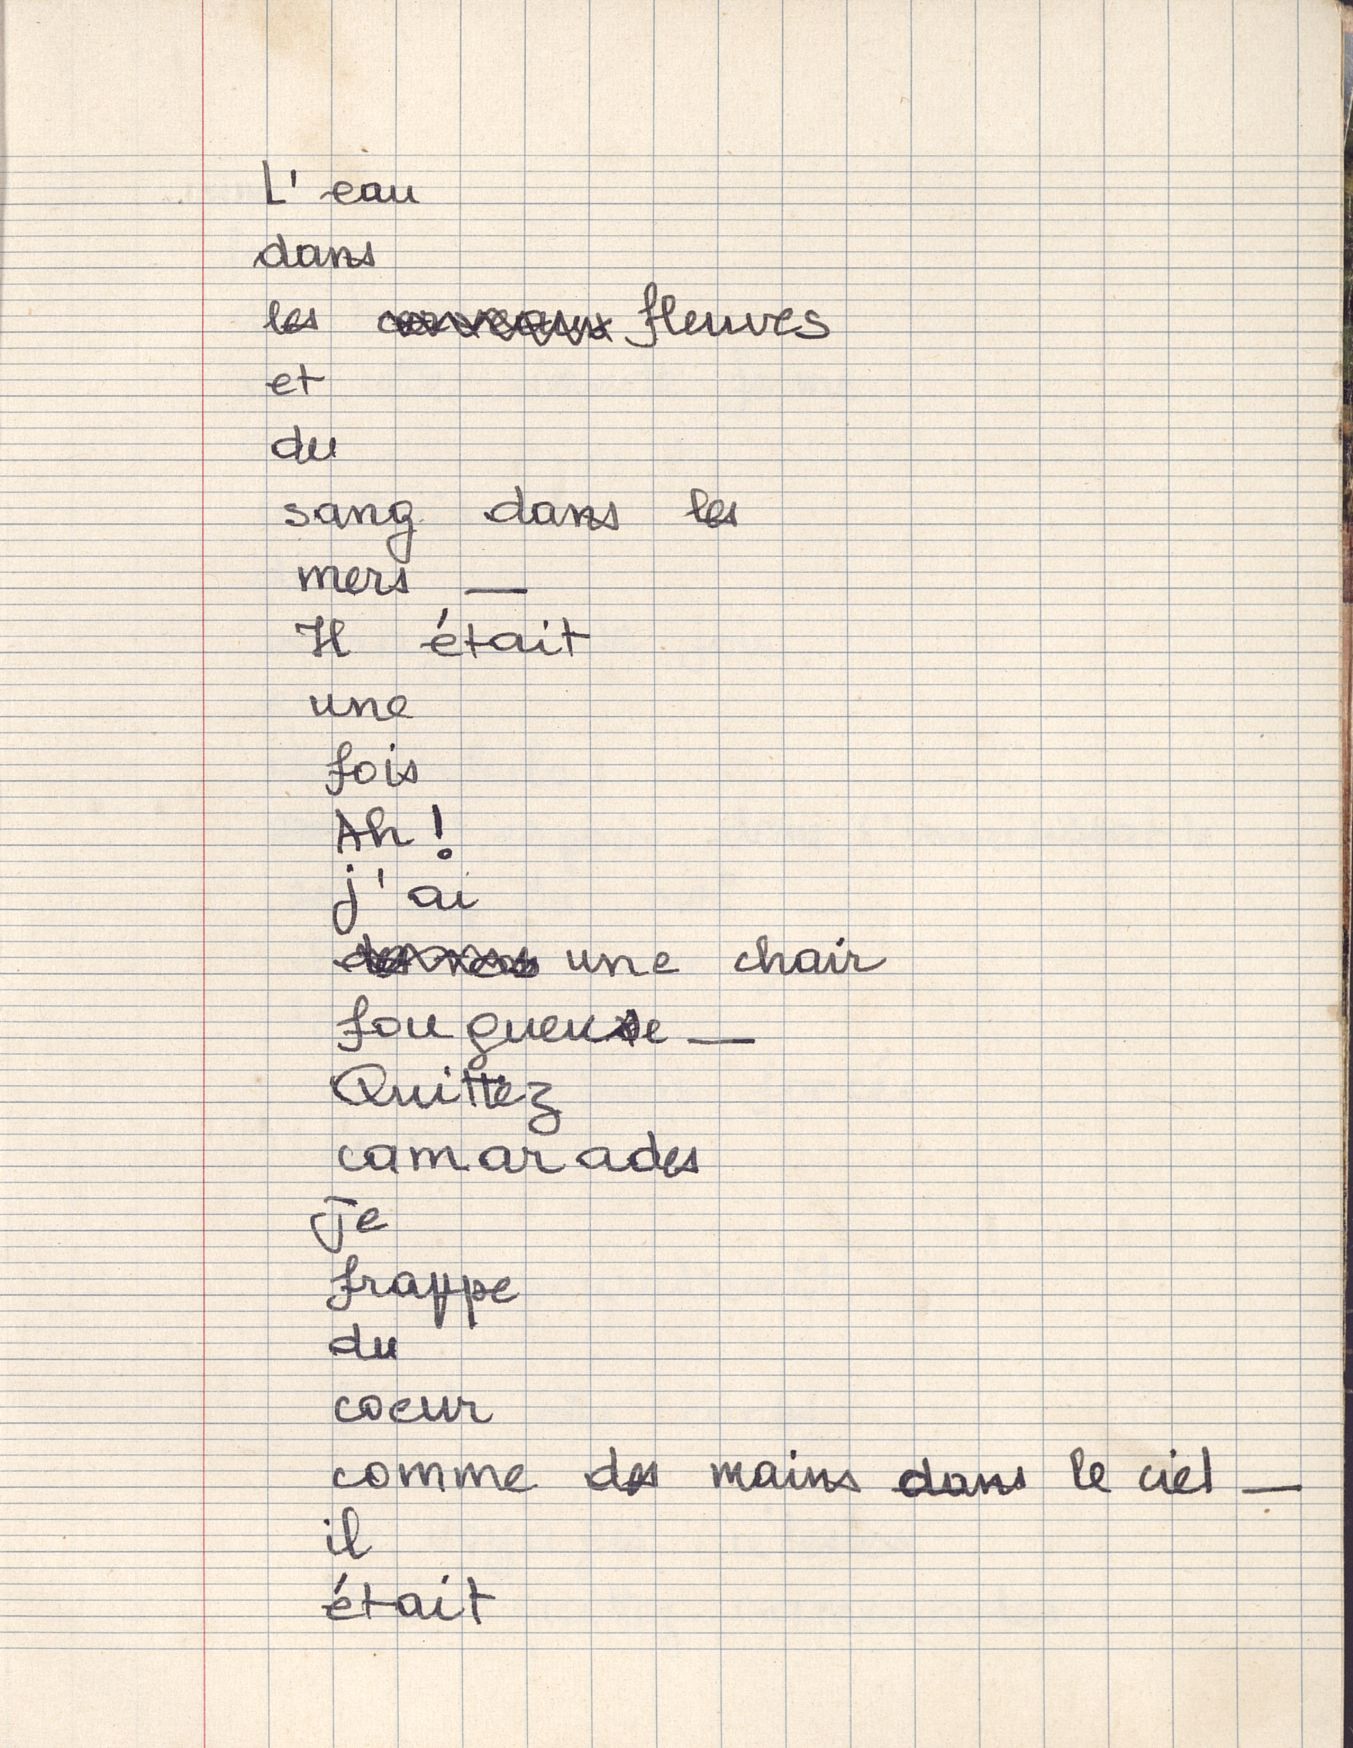 L'eau
dans
les fleuves
et
du
sang dans les
mers —
Il était
une
fois
Ah !
j'ai
une chair
fougueuse —
Quittez
camarades
Je
frappe
du
coeur
comme des mains dans le ciel —
il
était